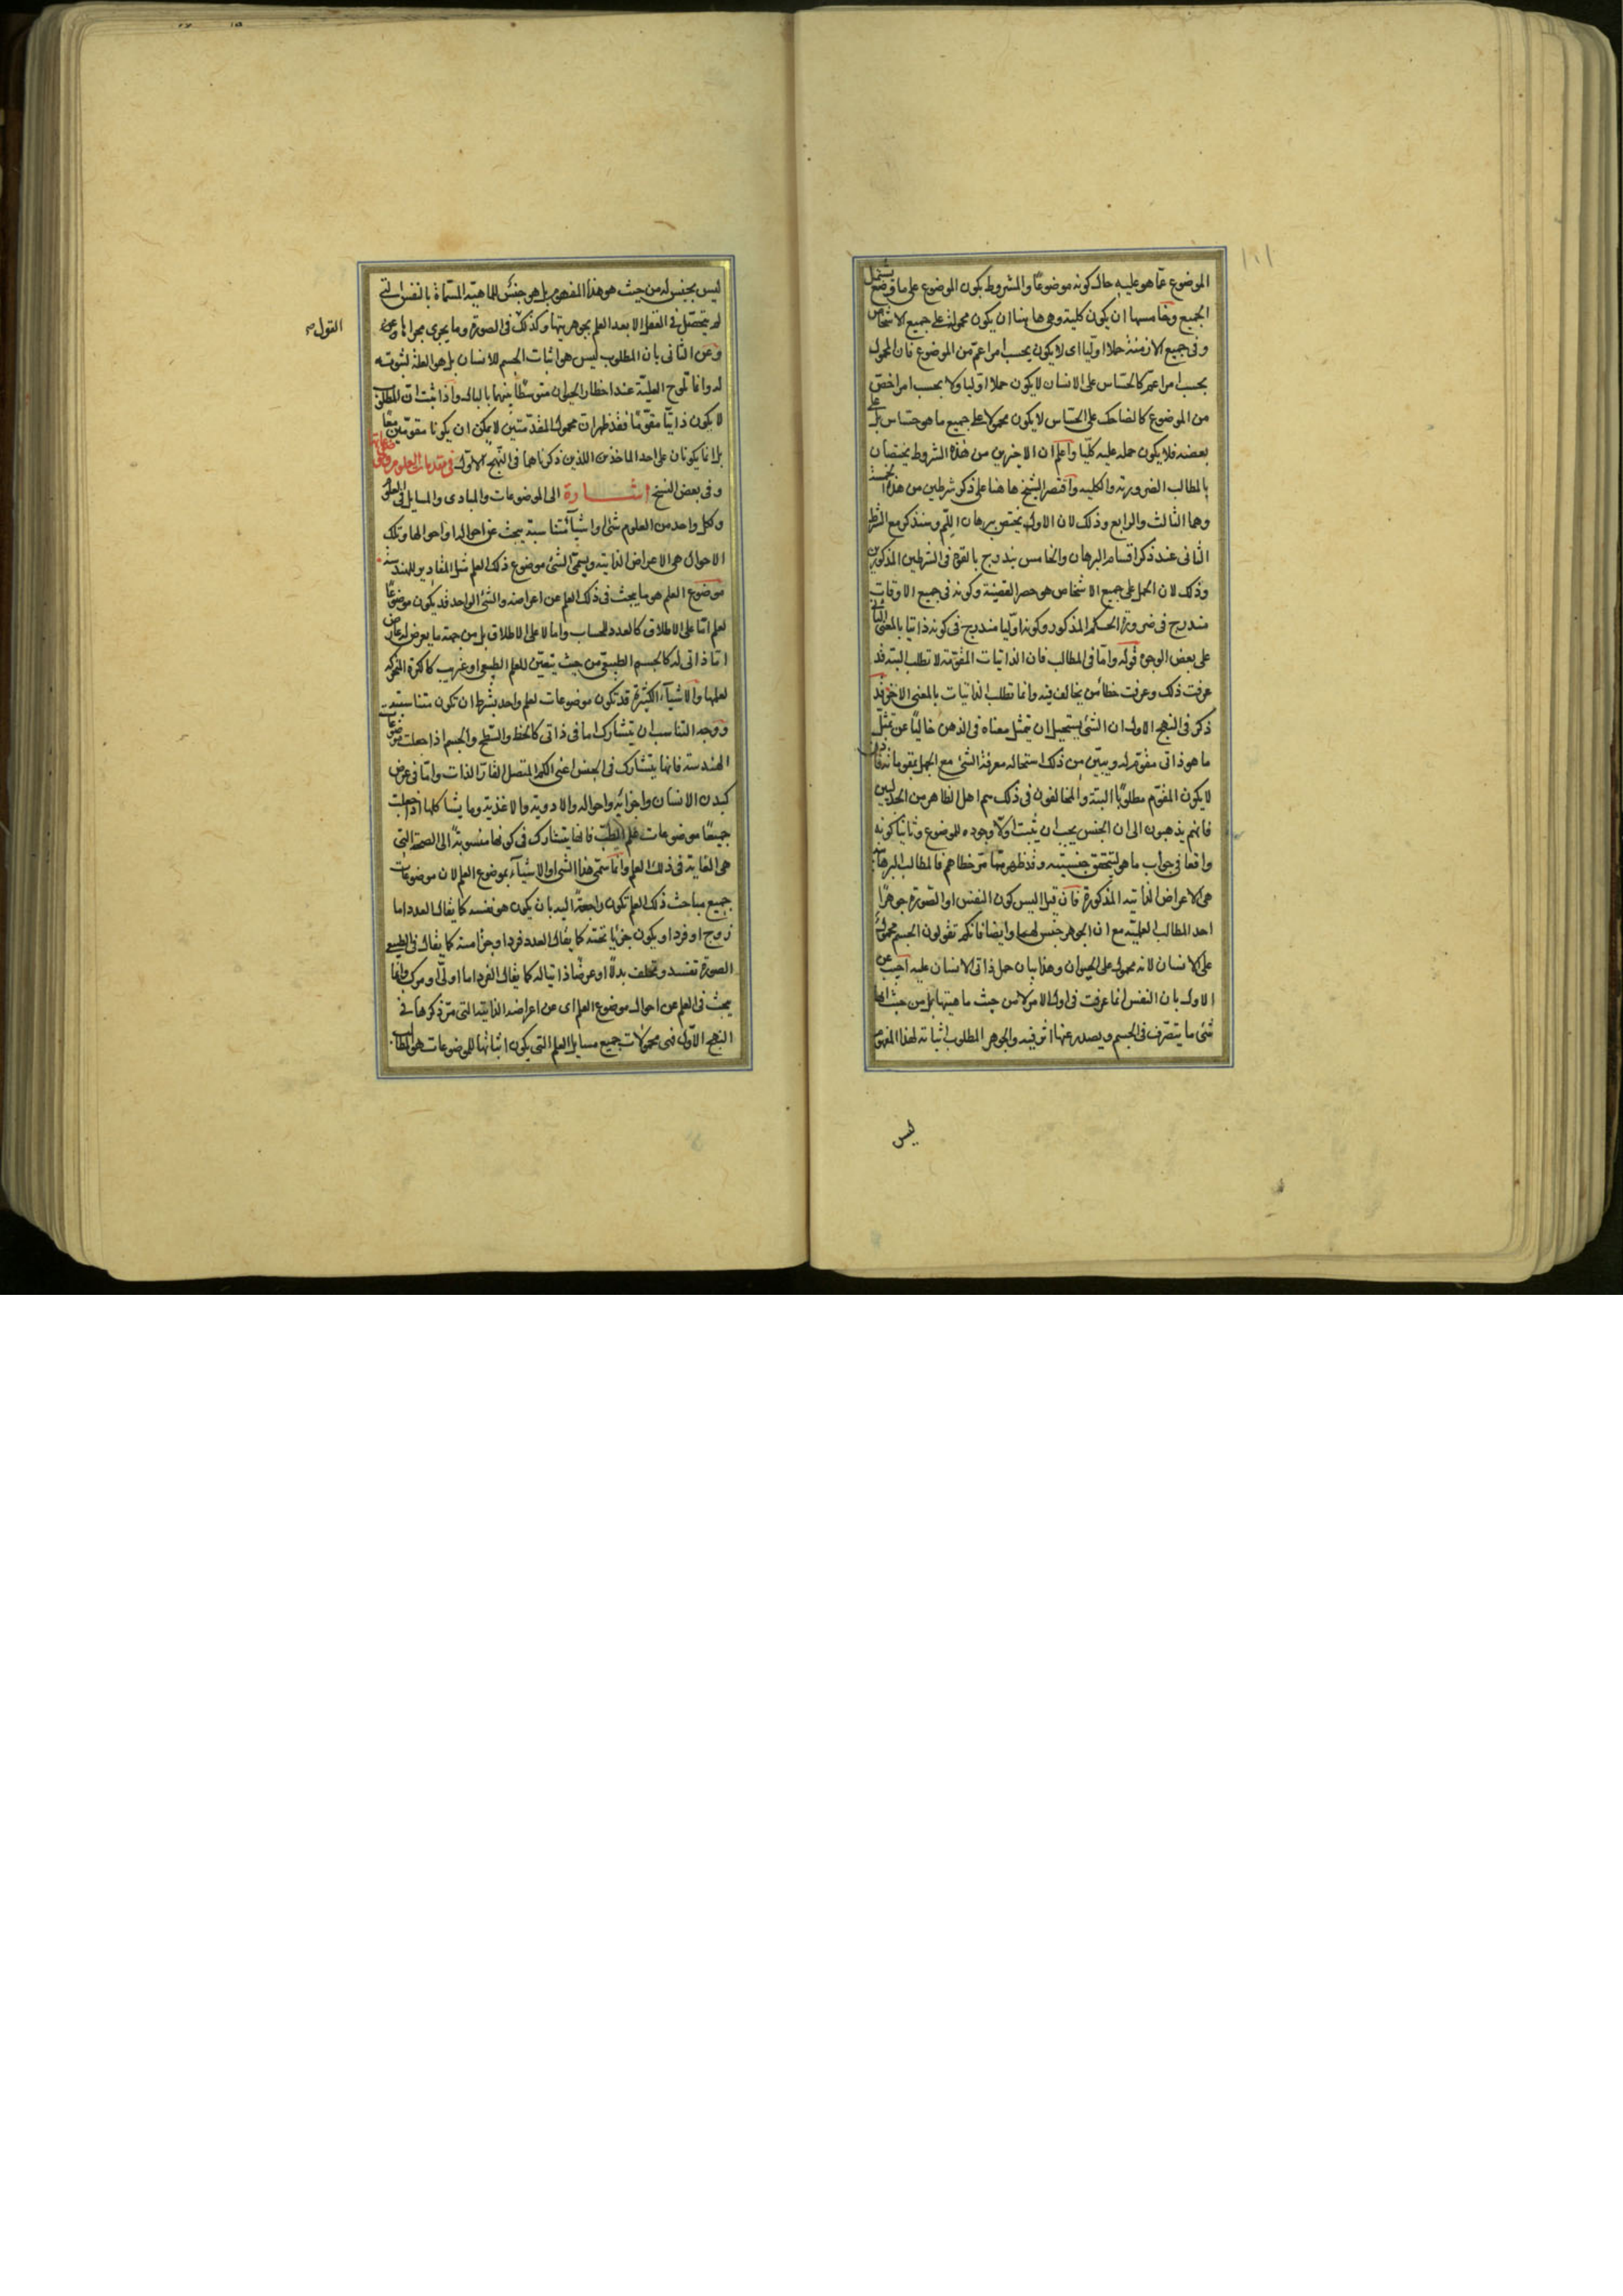 ١٦١
الموضوع عما هو عليه حال كونه موضوعا والمشروط بكون الموضوع على ما وضع يشتمل
الجميع وخامسها ان يكون كلية وهى هاهنا ان يكون محمولة على جميع الاشخاص
وفى جميع الازمنة حملا اوليا اى لا يكون بحسب امر اعم من الموضوع فان المحمول
بحسب امر اعم كالحساس على الانسان لا يكون حملا اوليا ولا بحسب امر اخص
من الموضوع كالضاحك على الحساس لا يكون محمولا على جميع ما هو حساس بل على
بعضه فلا يكون حمله عليه كليا واعلم ان الاخيرين من هذه الشروط يختصان
بالمطالب الضرورية والكلية واقتصر الشيخ هاهنا على ذكر شرطين من هذه الخمسة
وهما الثالث والرابع وذلك لان الاول يختص ببرهان اللم وسنذكره مع الشرط
الثانى عند ذكر اقسام البرهان والخامس يندرج بالقوة فى الشرطين المذكورين
وذلك لان الحمل على جميع الاشخاص هو حصر القضية وكونه فى جميع الاوقات
مندرج فى ضرورة الحكم المذكور وكونه اوليا مندرج فى كونه ذاتيا بالمعنى الثانى
على بعض الوجوه قوله واما فى المطالب فان الذاتيات المقومة لا تطلب البتة قد
عرفت ذلك وعرفت خطأ من يخالف فيه وانما تطلب الذاتيات بالمعنى الاخر قد
ذكر فى النهج الاول ان الشئ يستحيل ان يتمثل معناه فى الذهن خاليا عن تمثل
ما هو ذاتى مقوم له ويبين من ذلك استحالة معرفة الشئ مع الجهل بمقوماته فاذن
لا يكون المقوم مطلوبا البتة والمخالفون فى ذلك هم اهل الظاهر من الجدليين
فانهم يذهبون الى ان الجنس يجب ان يثبت اولا وجوده للموضوع وثانيا كونه
واقعا فى جواب ما هو ليتحقق جنسيته وقد ظهر مما مر خطاهم فالمطالب البرهانية
هى الاعراض الذاتية المذكورة فان قيل اليس كون النفس او الصورة جوهرا
احد المطالب العلمية مع ان الجوهر جنس لهما وايضا فانكم تقولون الجسم محمول
على الانسان لانه محمول على الحيوان وهذا بيان حمل ذاتى الانسان عليه اجيب عن
الاول بان النفس انما عرفت فى اول الامر لا من حيث ماهيتها بل من حيث انها
شئ ما يتصرف فى الجسم ويصدر عنها اثر فيه والجوهر المطلوب اثباته لهذا المفهوم
ليس
ليس بجنس له من حيث هو هذا المفهوم بل هو جنس للماهية المسماة بالنفس التى
لم يتحصل فى العقل الا بعد العلم بجوهريتها وكذلك فى الصورة وما يجرى مجراها
القول
وعن الثانى بان المطلوب ليس هو اثبات الجسم للانسان بل هو العلة لثبوته
له وانما تلوح العلية عند اخطار الحيوان متوسطا بينهما بالبال واذا ثبت ان المطلوب
لا يكون ذاتيا مقوما فقد ظهر ان محمول المقدمتين لا يمكن ان يكونا مقومين معا
بل انما يكونان على احد الماخذين اللذين ذكرناهما فى النهج الاول فى مقدمات العلوم وموضوعاتها
وفى بعض النسخ اشارة الى الموضوعات والمبادى والمسايل فى العلوم
ولكل واحد من العلوم شئ او اشياء متناسبة يبحث عن احواله او احوالها وتلك
الاحوال هى الاعراض الذاتية ويسمى الشئ موضوع ذلك العلم مثل المقادير للهندسة
موضوع العلم هو ما يبحث فى ذلك العلم عن اعراضه والشئ الواحد قد يكون موضوعا
لعلم اما على الاطلاق كالعدد للحساب واما لا على الاطلاق بل من جهة ما يعرض له عارض
اما ذاتى له كالجسم الطبيعى من حيث يتغير للعلم الطبيعى او غريب كالكرة المتحركة
لعلمها والاشياء الكثيرة قد تكون موضوعات لعلم واحد بشرط ان تكون متناسبة
ووجه التناسب ان يتشارك اما فى ذاتى كالخط والسطح والجسم اذا جعلت موضوعات
الهندسة فانها يتشارك فى الجنس اعنى الكم المتصل القار الذات واما فى عرضى
كبدن الانسان واجزائه واحواله والادوية والاغذية وما يشاكلها اذا جعلت
جميعا موضوعات علم الطب فانها يتشارك فى كونها منسوبة الى الصحة التى
هى الغاية فى ذلك العلم وانما سمى هذا الشئ او الاشياء بموضوع العلم لان موضوعات
جميع مباحث ذلك العلم تكون راجعة اليه بان يكون هو نفسه كما يقال العدد اما
زوج او فرد او يكون جزئيا تحته كما يقال العدد فرد او جزأ منه كما يقال فى الطبيعى
الصورة تفسد وتخلف بدلا او عرضا ذاتيا له كما يقال الفرد اما اولى او مركب وانما
يبحث فى العلم عن احوال موضوع العلم اى عن اعراضه الذاتية التى مر ذكرها فى
النهج الاول فهى محمولات جميع مسايل العلم التى يكون اثباتها للموضوعات هو المطالب